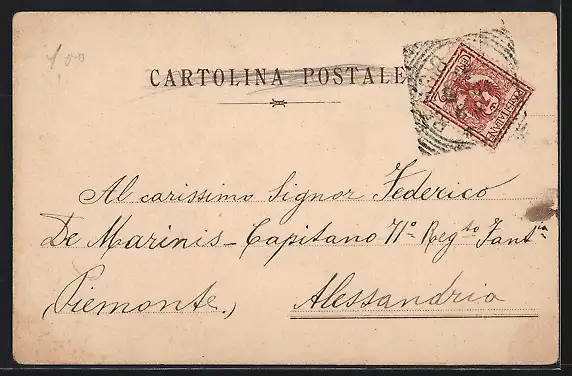 1 00
CARTOLINA POSTALE
POSTE ITALIANE
Al carissimo Signor Federico
De Marinis - Capitano 71º Regto Fantia
(Piemonte.) Alessandria